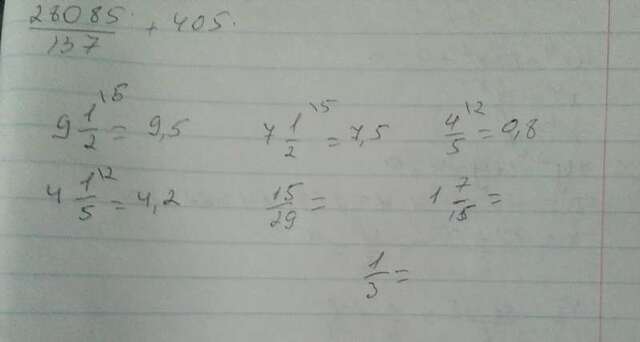 28085/137 + 405.
9 1/2 \5 = 9,5 7 1/2 \5 = 7,5 4/5 \2 = 0,8
4 1/5 \2 = 4,2 15/29 = 1 7/15 =
1/3 =